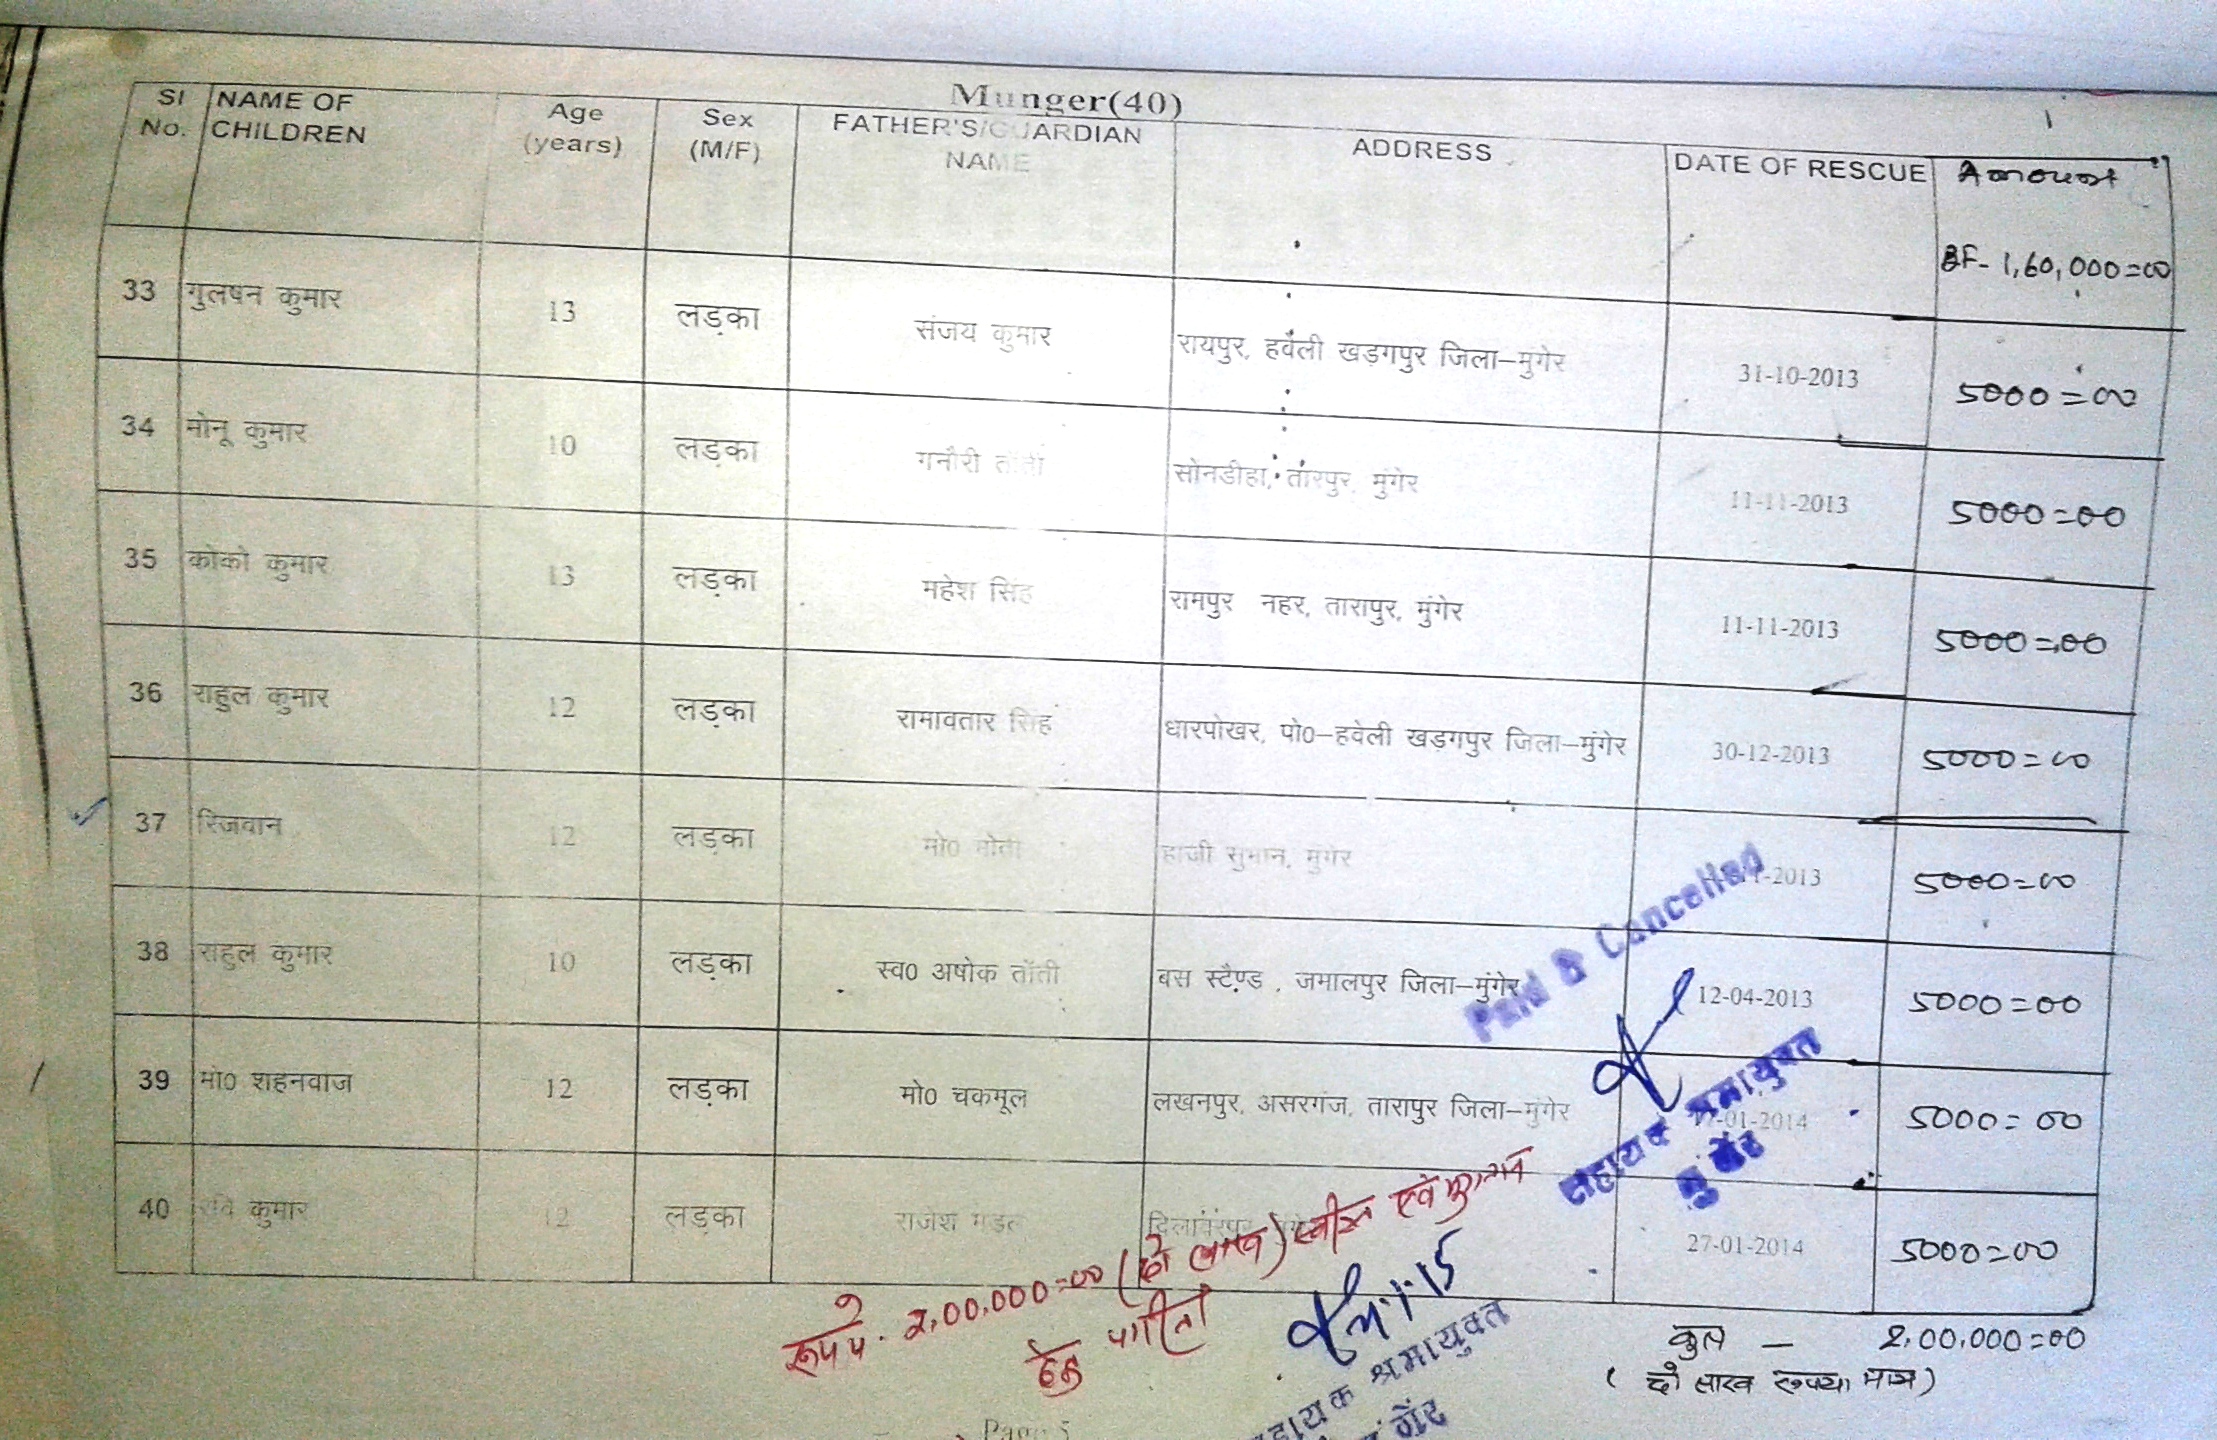 Munger(40)
Sl No. NAME OF CHILDREN Age (years) Sex (M/F) FATHER'S/GUARDIAN NAME ADDRESS DATE OF RESCUE Amount
BF- 1,60,000=00
33 गुलषन कुमार 13 लड़का संजय कुमार रायपुर, हवेली खडगपुर जिला–मुंगेर 31-10-2013 5000=00
34 मोनू कुमार 10 लड़का सोनडीहा, तारपुर, मुंगेर 11-11-2013 5000=00
35 कोको कुमार 13 लड़का महेश सिंह रामपुर नहर, तारापुर, मुंगेर 11-11-2013 5000=00
36 राहुल कुमार 12 लड़का रामावतार सिंह धारपोखर, पो0–हवेली खडगपुर जिला–मुंगेर 30-12-2013 5000=00
37 रिजवान 12 लड़का मो0 हाजी सुभान, मुंगेर -2013 5000=00
38 राहुल कुमार 10 लड़का स्व0 अषोक ताँती बस स्टेण्ड, जमालपुर जिला–मुंगेर 12-04-2013 5000=00
39 मो0 शहनवाज 12 लड़का मो0 चकमूल लखनपुर असरगंज, तारापुर जिला–मुंगेर -01-2014 5000=00
40 कुमार 12 लड़का राजेश मंडल 27-01-2014 5000=00
Paid & Cancelled
सहायक श्रमायुक्त
मुंगेर
कुल — 2,00,000=00
( दो लाख रूपया मात्र )
2,00,000=00 (दो लाख)
हेतु पारित
सहायक श्रमायुक्त
मुंगेर